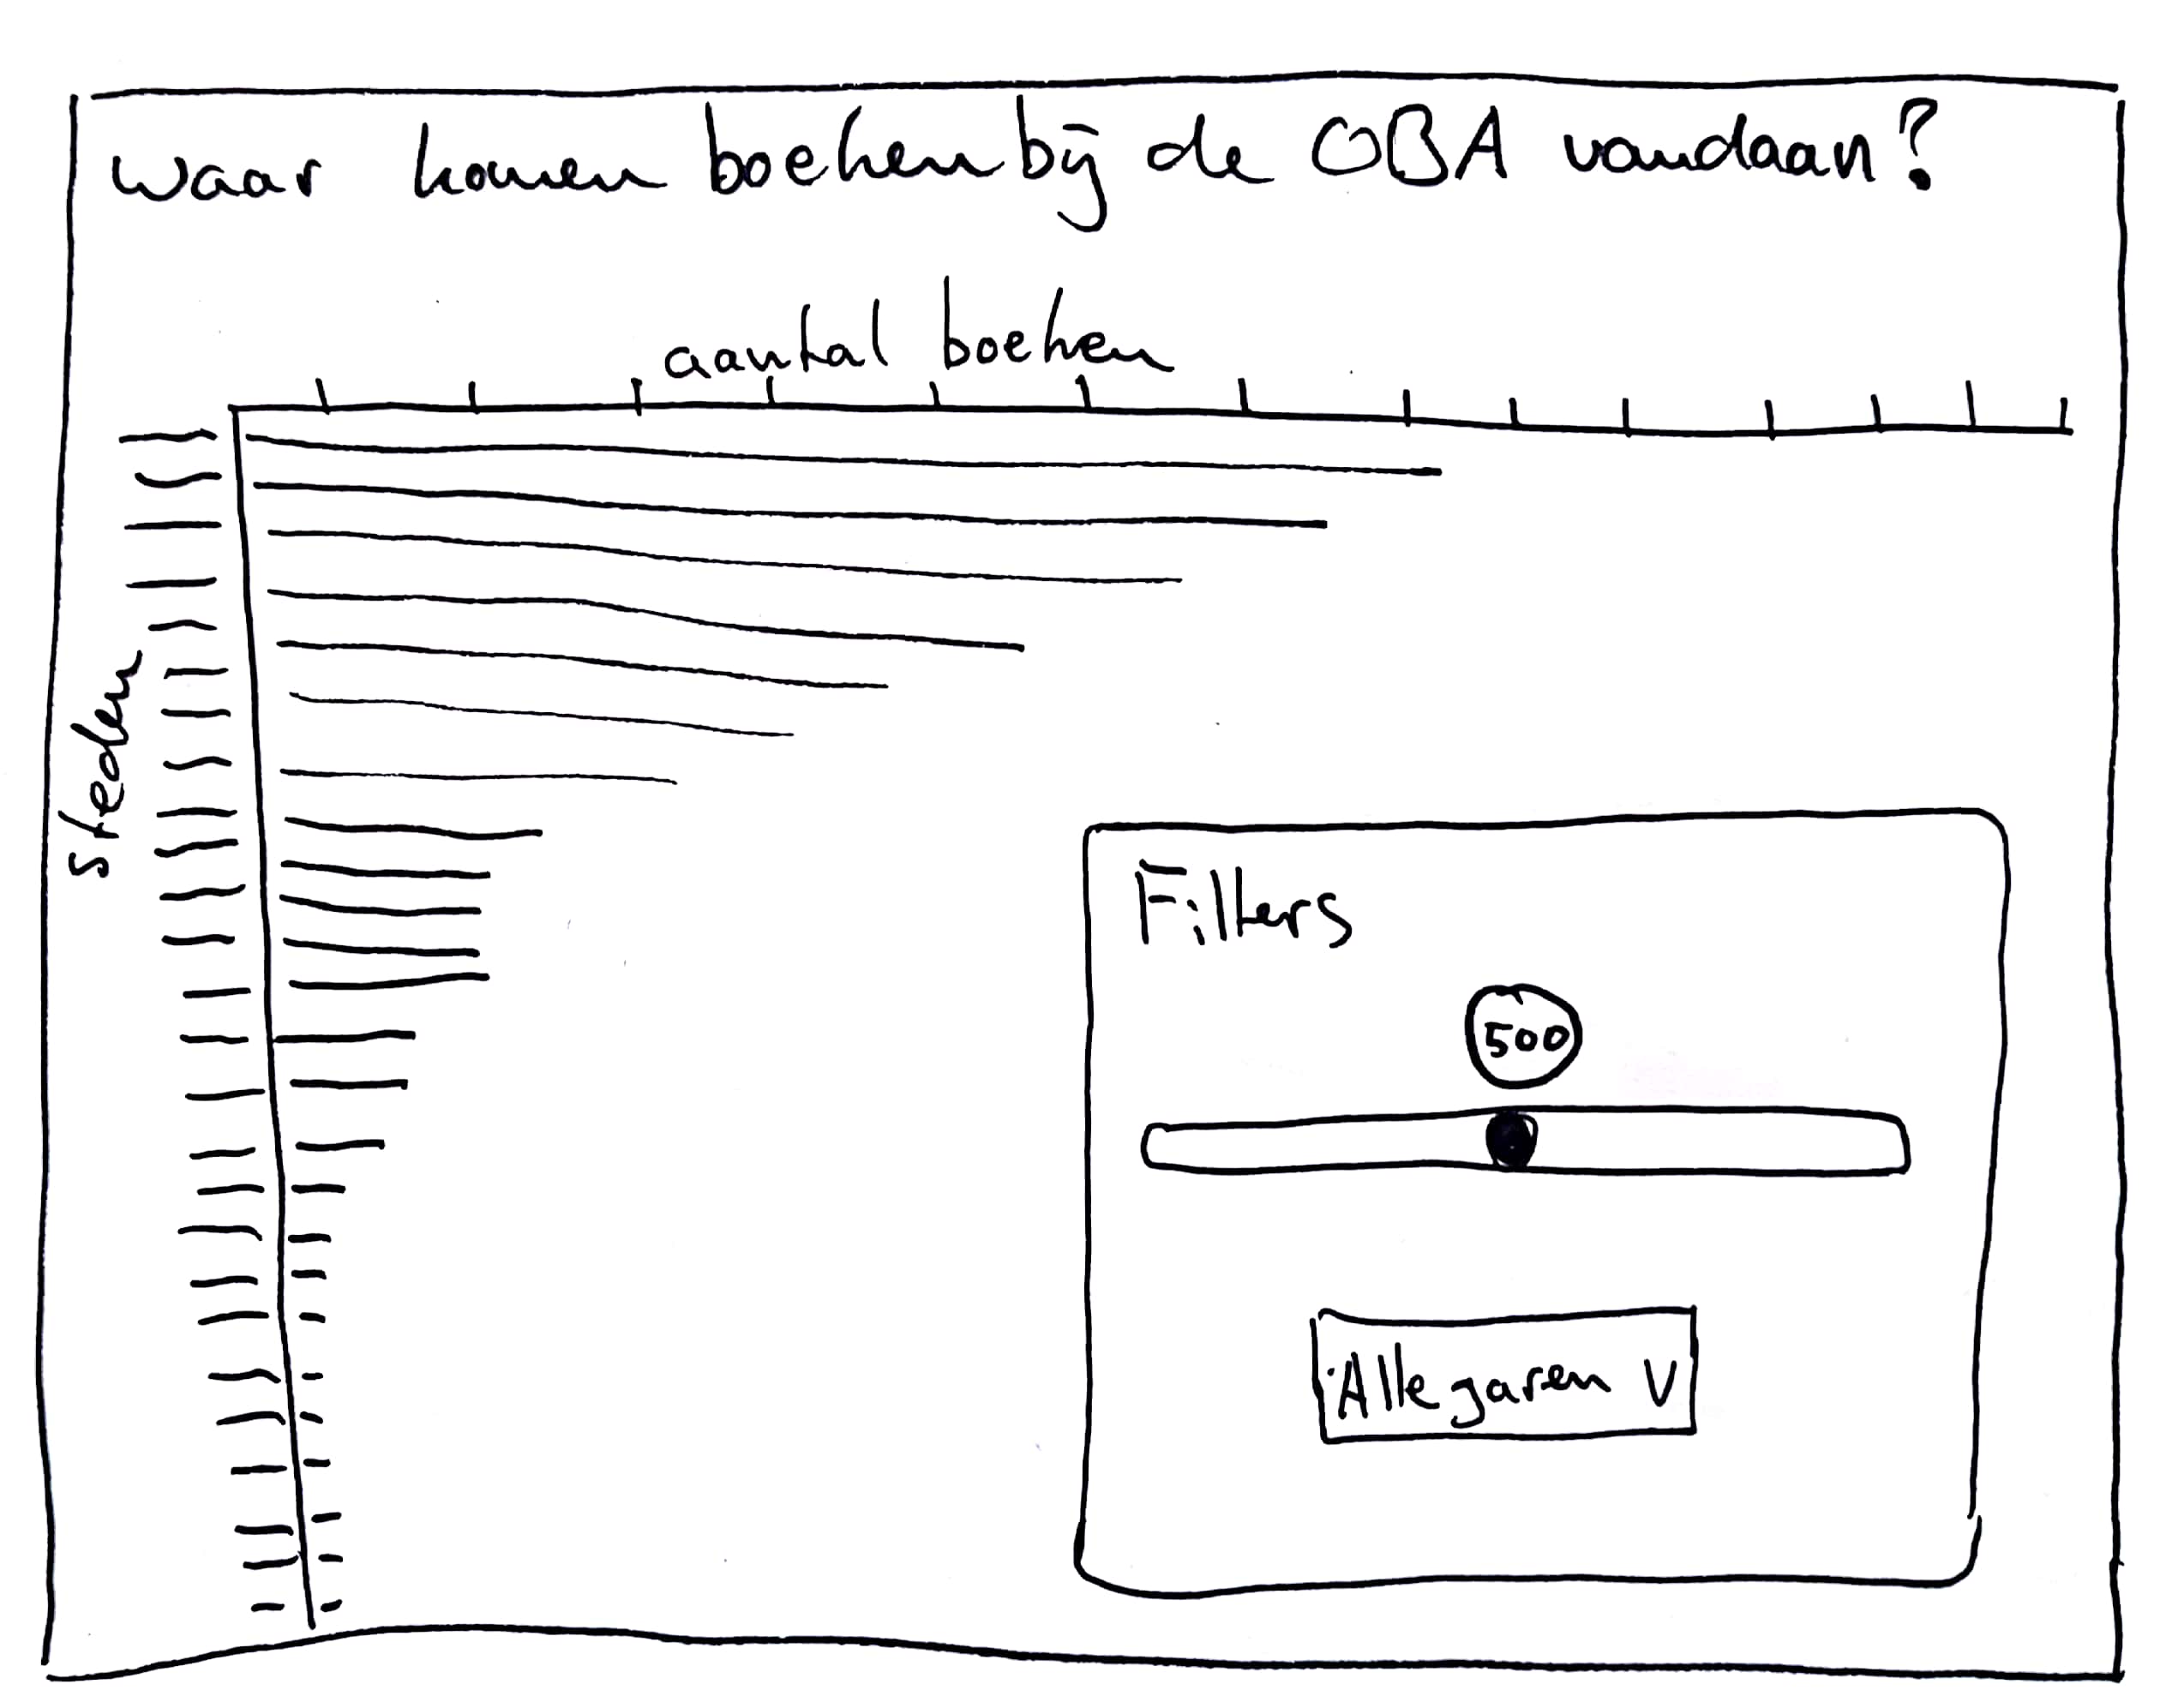 waar komen boeken bij de OBA vandaan?
aantal boeken
steden
Filters
500
Alle jaren V